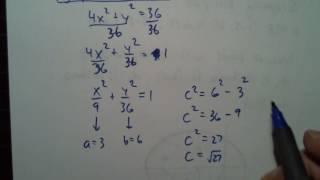 4x² + y² / 36 = 36 / 36
4x² / 36 + y² / 36 = 1
x² / 9 + y² / 36 = 1
a = 3 b = 6
c² = 6² - 3²
c² = 36 - 9
c² = 27
c = √27